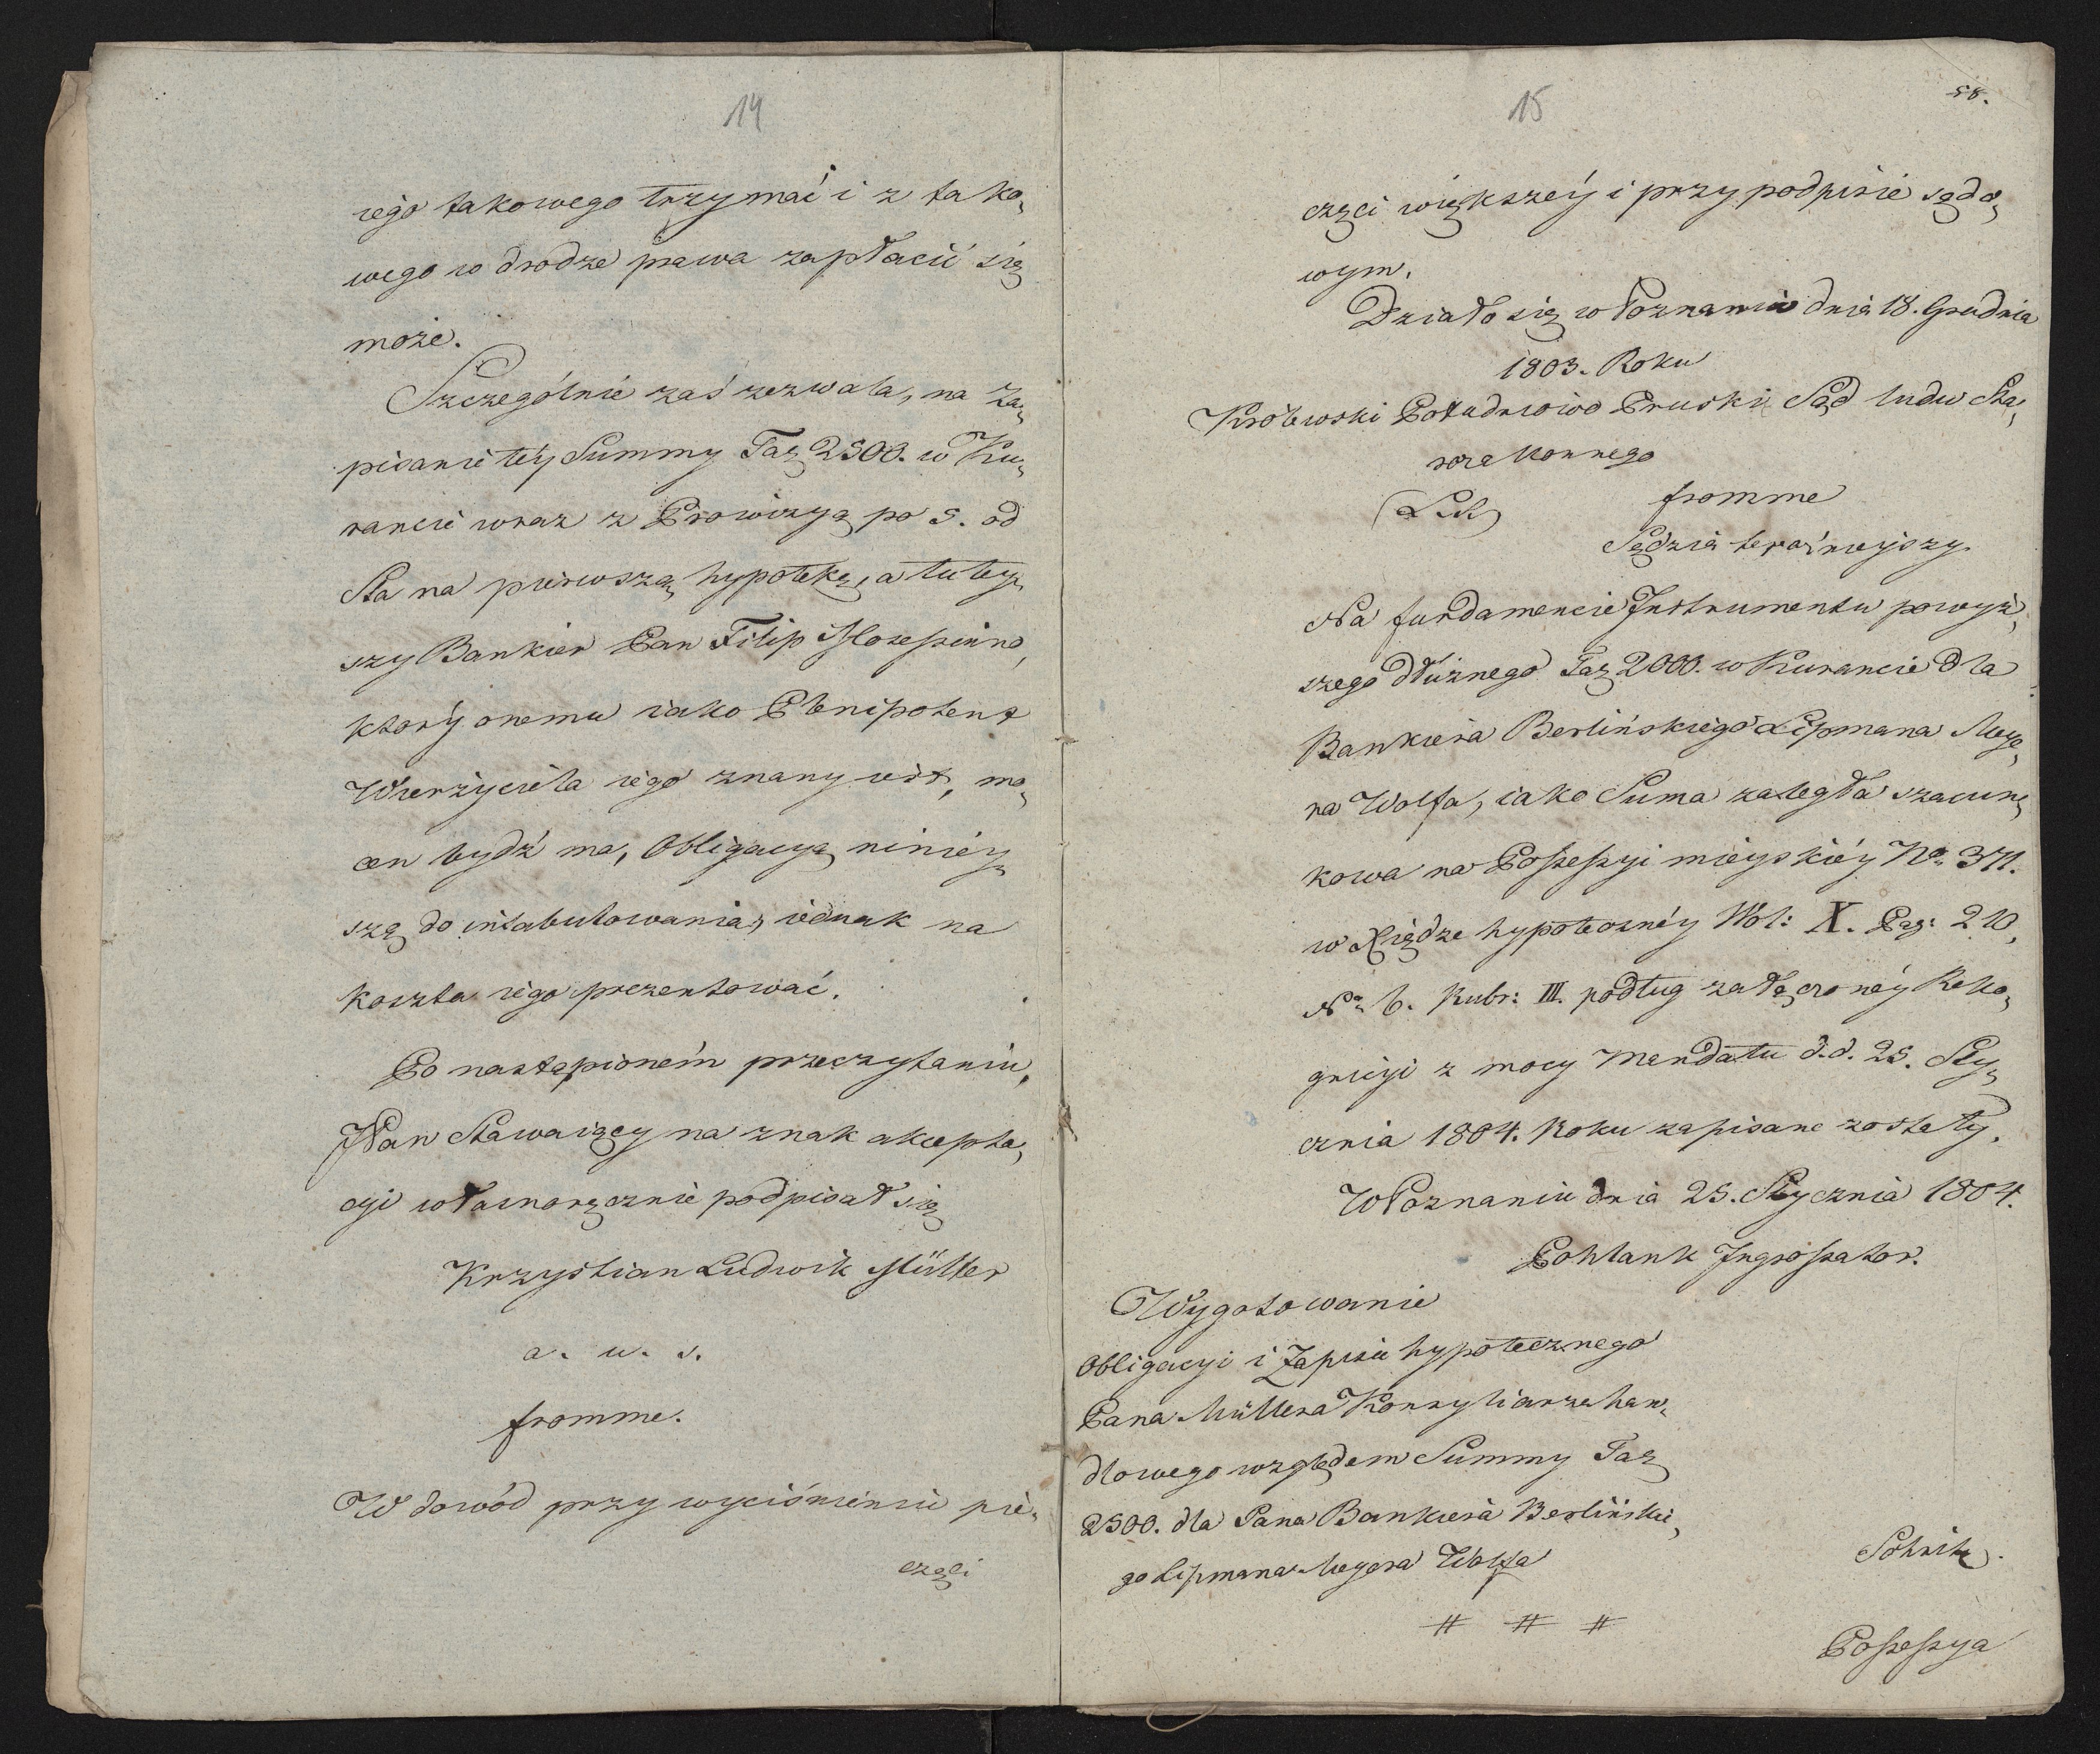 14
iego takowego trzymać i z tako„
wego w drodze prawa zapłacić się
może.
Szczególnie zaś zezwala, na Za„
pisanie téy Summy Tar 2500. w Ku„
rancie wraz z Prowizyą po 5. od
Sta na pierwszą hypotekę, a tutey„
szy Bankier Pan Filip
który onemu iako Plenipotent
Wierzyciela iego znany iest, mo„
cen bydź ma, Obligacyą niniéy„
szą do intabulowania, iednak na
koszta iego prezentować.
Po nastąpioném przeczytaniu,
JPan Stawaiący na znak akcepta„
cyi własnoręcznie podpisał się
Krzystian Ludwik Müller
a. u. s.
fromme.
W dowód przy wyciśnieniu pie„
częci
15
58.
częci większéy i przy podpisie sądo„
wym.
Działo się w Poznaniu dnia 18. Grudnia
1803. Roku
Królewski Południowo Pruski Sąd ludu Sta„
rozakonnego
fromme
Sędzia teraźnieyszy.
Na fundamencie Instrumentu powyż„
szego dłużnego Tar 2000. w Kurancie dla
Bankiera Berlińskiego Lipmana Meye„
ra Wolfa, iako Suma zaległa szacun„
kowa na Possessyi mieyskiéy No. 371.
w Xiędze hypotecznéy Vol: X. Pag: 210.
No. 6. Rubr: III. podług załączonéy Reko„
gnicyi z mocy Mandatu d. d. 25. Sty„
cznia 1804. Roku zapisane zostały.
W Poznaniu dnia 25. Stycznia 1804.
Pohlank Ingrossator.
Wygotowanie
Obligacyi i Zapisu hypotecznego
Pana Müllera Konsyliarza han„
dlowego względem Summy Tar
2500. dla Pana Bankiera Berlińskie„
go Lipmana Meyera Wolfa
# # #
Possessya